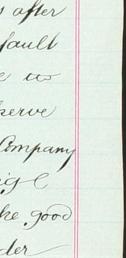 after
fault
us
serve
Company
ige
ke good
der